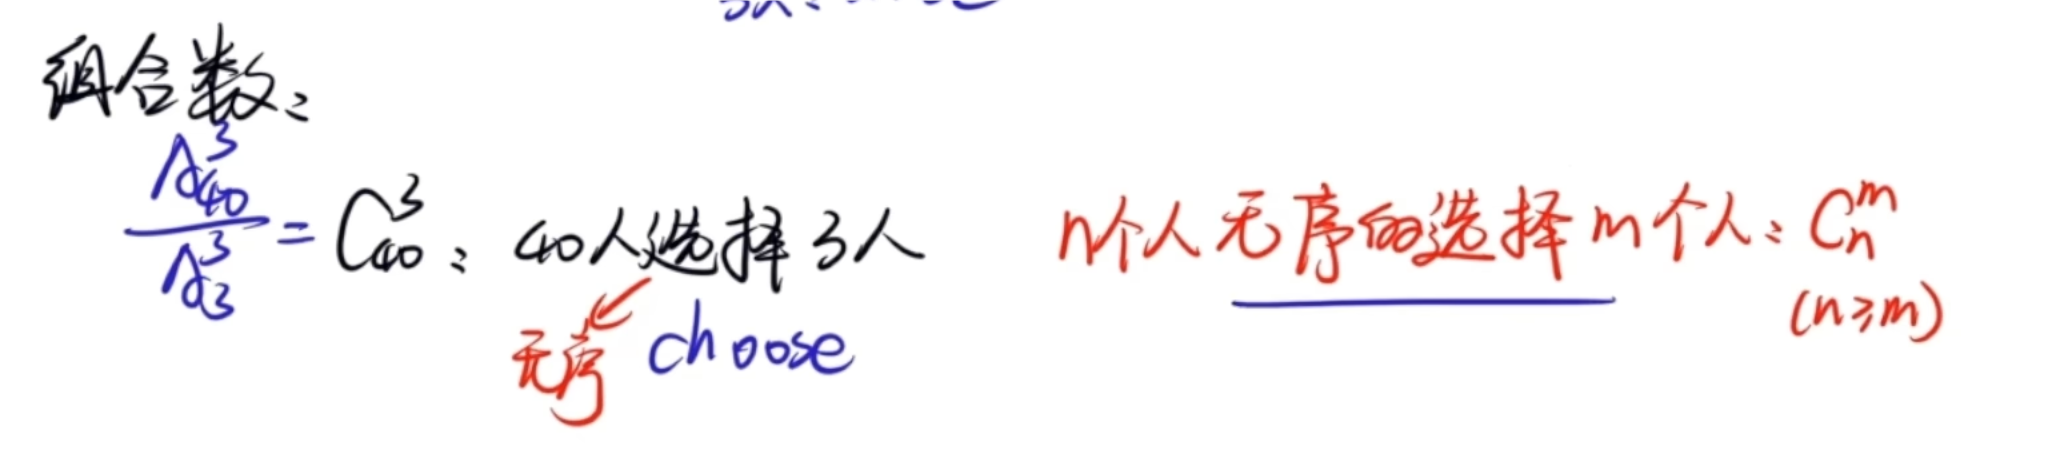 组合数：
A_{40}^{3} / A_{3}^{3} = C_{40}^{3}：40人选择3人
无序 choose
n个人无序的选择m个人：C_{n}^{m}
(n≥m)